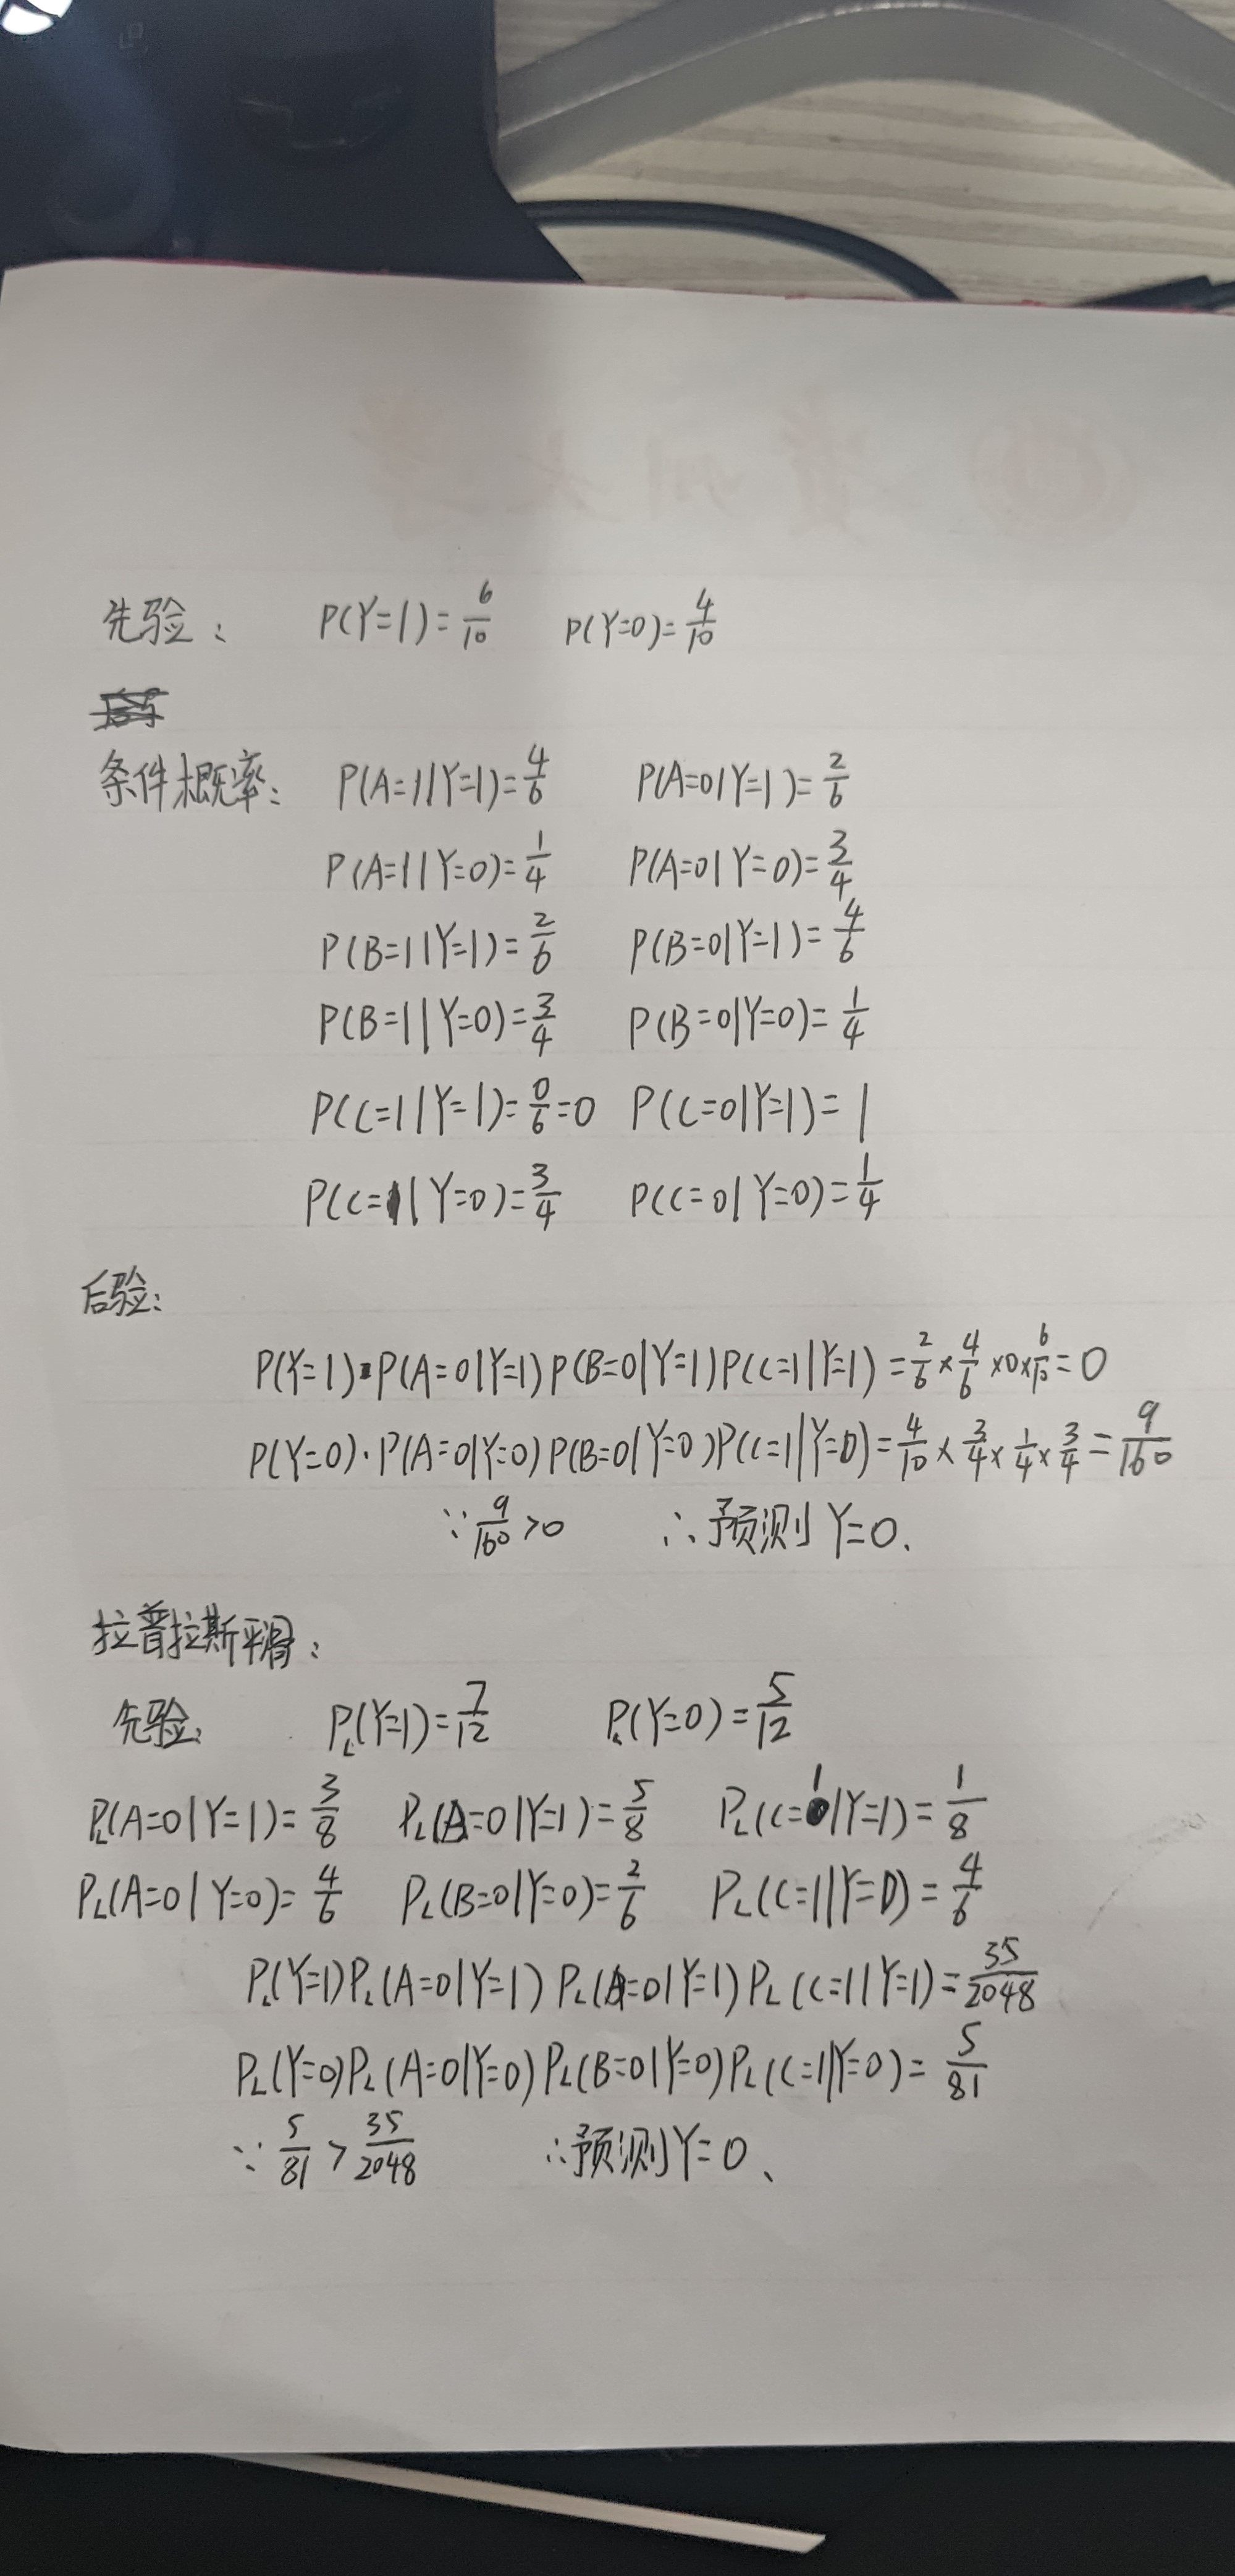 先验: P(Y=1)=6/10 P(Y=0)=4/10
条件概率: P(A=1|Y=1)=4/6 P(A=0|Y=1)=2/6
P(A=1|Y=0)=1/4 P(A=0|Y=0)=3/4
P(B=1|Y=1)=2/6 P(B=0|Y=1)=4/6
P(B=1|Y=0)=3/4 P(B=0|Y=0)=1/4
P(C=1|Y=1)=0/6=0 P(C=0|Y=1)=1
P(C=1|Y=0)=3/4 P(C=0|Y=0)=1/4
后验:
P(Y=1)·P(A=0|Y=1)P(B=0|Y=1)P(C=1|Y=1)=2/6×4/6×0×6/10=0
P(Y=0)·P(A=0|Y=0)P(B=0|Y=0)P(C=1|Y=0)=4/10×3/4×1/4×3/4=9/160
∵9/160>0 ∴预测Y=0.
拉普拉斯平滑:
先验: P_L(Y=1)=7/12 P_L(Y=0)=5/12
P_L(A=0|Y=1)=3/8 P_L(B=0|Y=1)=5/8 P_L(C=1|Y=1)=1/8
P_L(A=0|Y=0)=4/6 P_L(B=0|Y=0)=2/6 P_L(C=1|Y=0)=4/6
P_L(Y=1)P_L(A=0|Y=1)P_L(A=0|Y=1)P_L(C=1|Y=1)=35/2048
P_L(Y=0)P_L(A=0|Y=0)P_L(B=0|Y=0)P_L(C=1|Y=0)=5/81
∵5/81>35/2048 ∴预测Y=0、